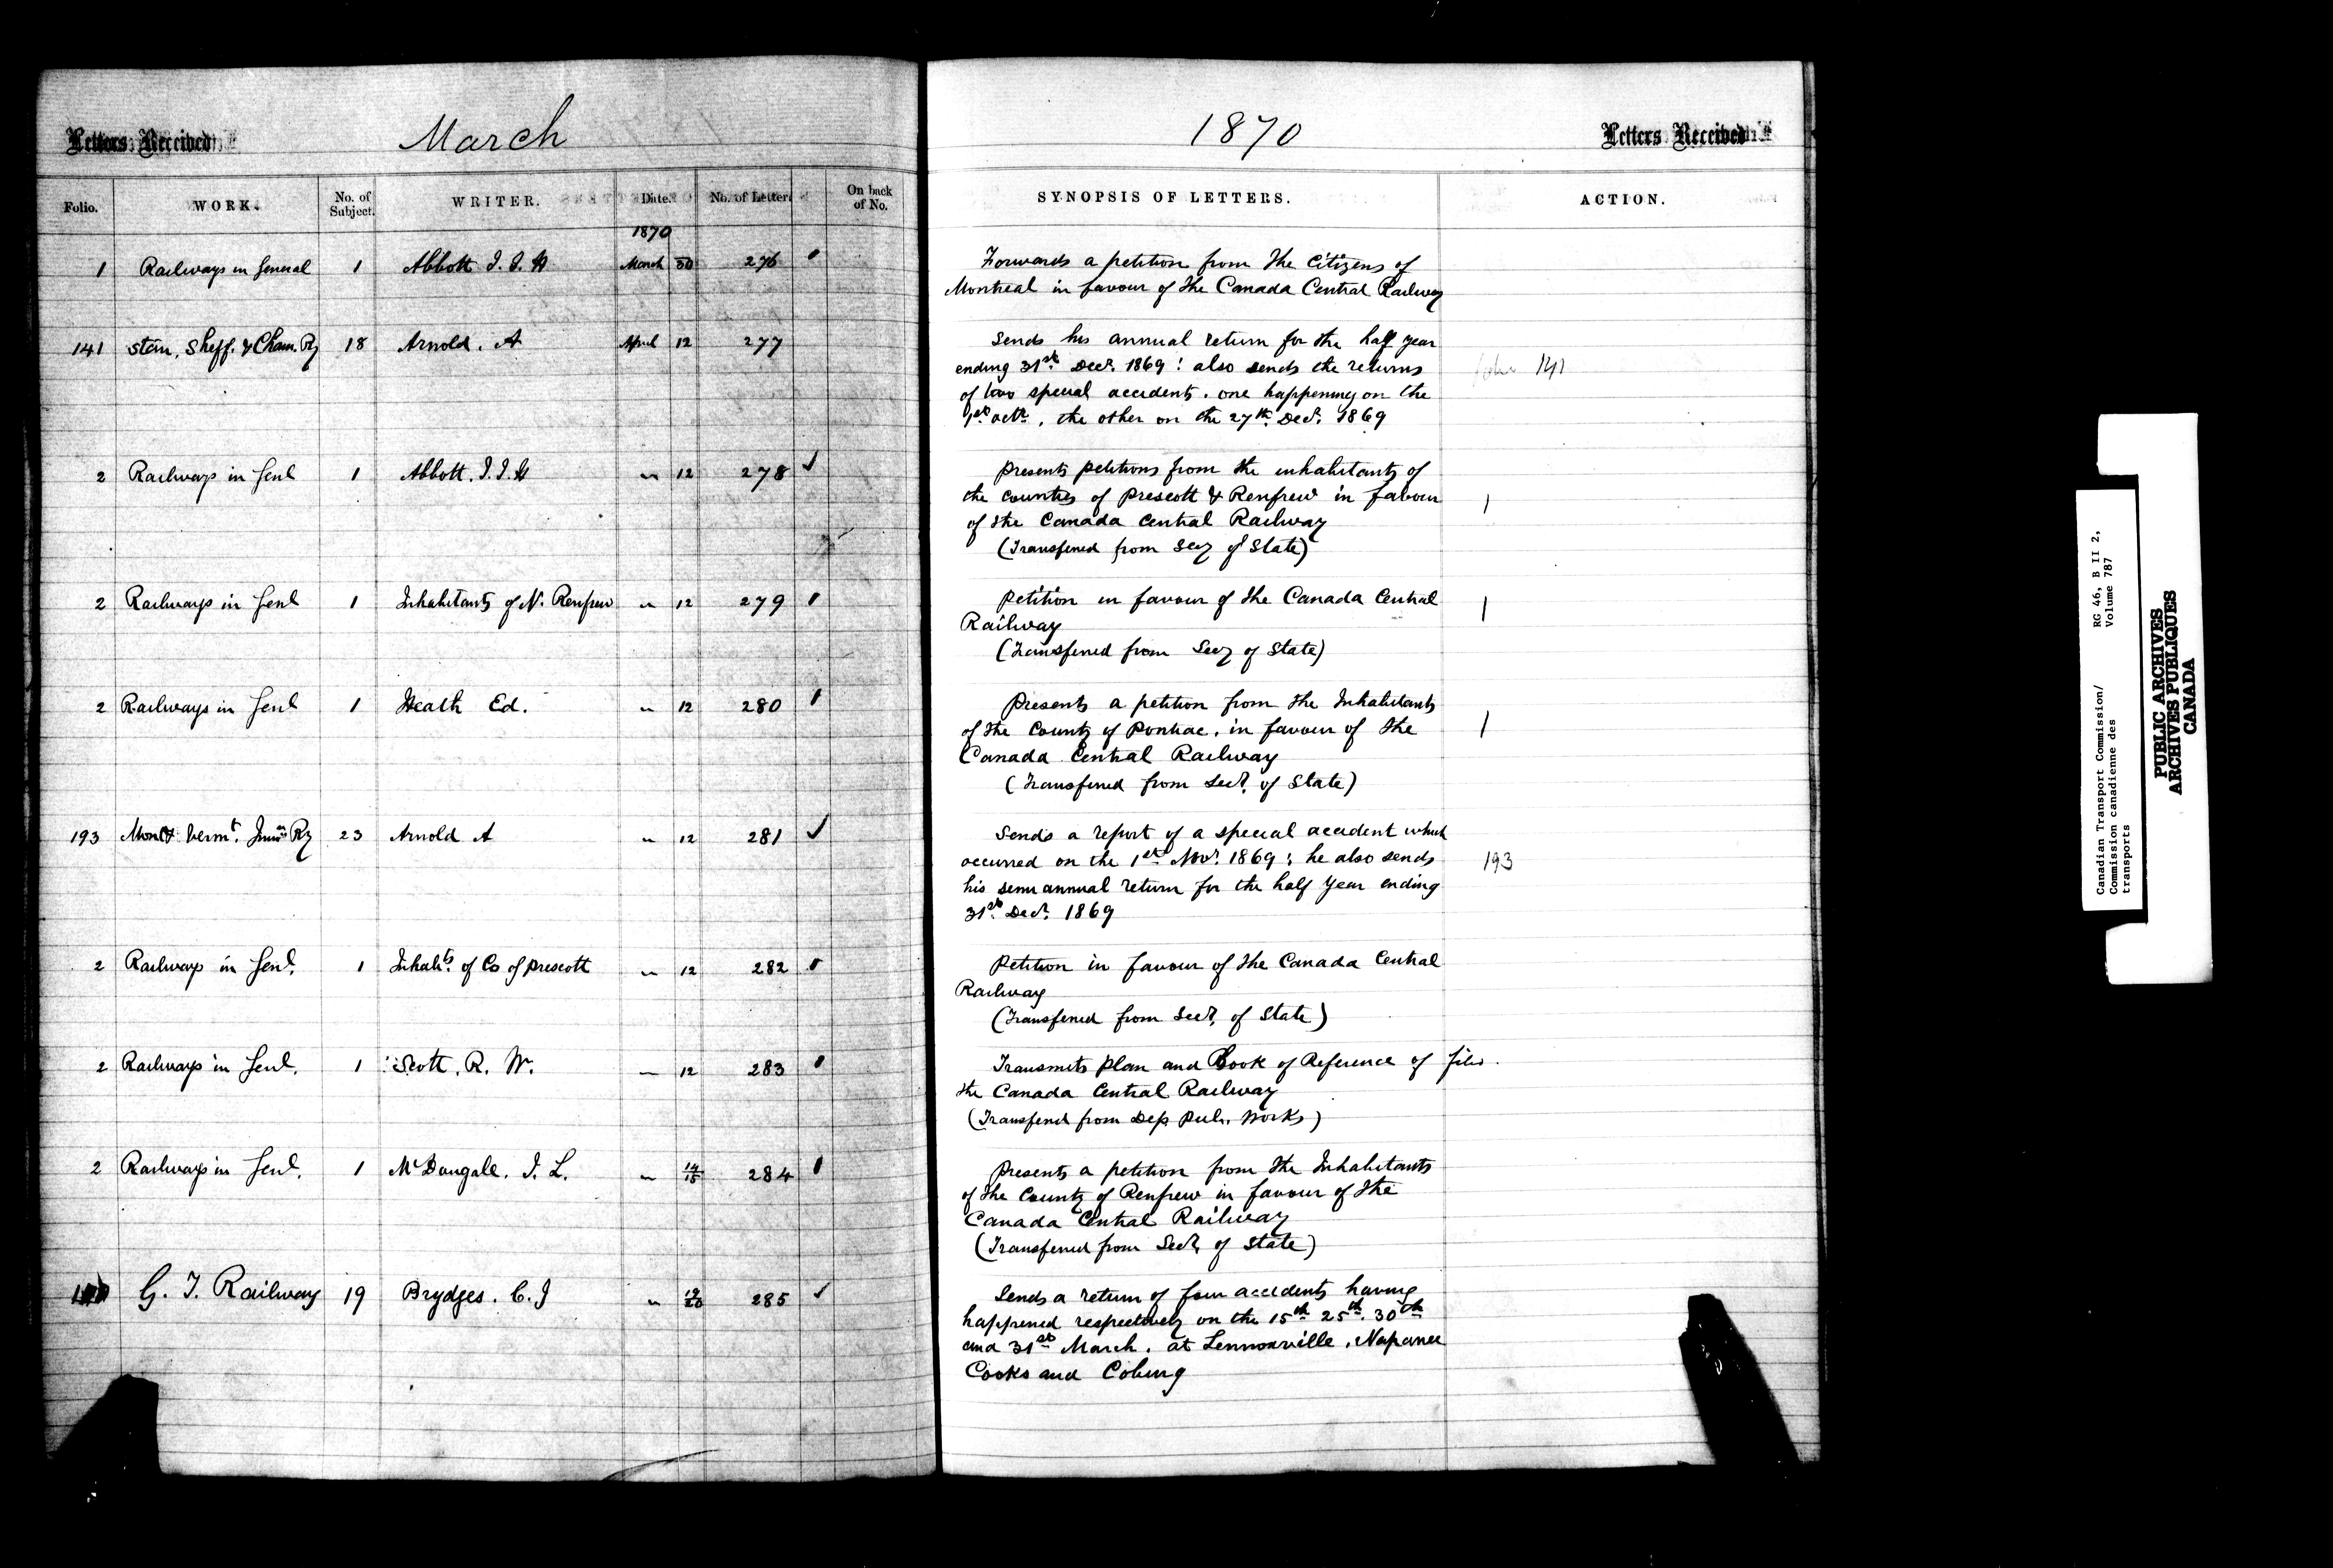 Letters Received
March
Folio. WORK. No. of Subject. WRITER. Date. No. of Letter. On back of No.
1870
1 Railways in General 1 Abbott J. J. H March 30 276
141 Stan, Sheff. & Cham. Ry 18 Arnold. A April 12 277
2 Railways in Genl 1 Abbott. J. J. H " 12 278 ✓
2 Railways in Genl 1 Inhabitants of N. Renfrew " 12 279
2 Railways in Genl 1 Heath Ed. " 12 280
193 Mont & Vermt. Junn Ry 23 Arnold A " 12 281 ✓
2 Railways in Genl. 1 Inhabts. of Co of Prescott " 12 282
2 Railways in Genl. 1 Scott. R. W. " 12 283
2 Railways in Genl. 1 McDougall. J. L. " 14/15 284
G. T. Railway 19 Brydges. C. J " 19/20 285 ✓
1870
Letters Received
SYNOPSIS OF LETTERS. ACTION.
Forwards a petition from the Citizens of
Montreal in favour of the Canada Central Railway
Sends his annual return for the half year
ending 31st Decr. 1869 : also sends the returns
of two special accidents. one happening on the
1st Octr. , the other on the 27th Decr. 1869
141
Presents petitions from the inhabitants of
the counties of Prescott & Renfrew in favour
of the Canada Central Railway
(Transferred from Secy of State)
1
Petition in favour of the Canada Central
Railway
(Transferred from Secy of State)
1
Presents a petition from the Inhabitants
of the County of Pontiac. in favour of the
Canada Central Railway
(Transferred from Secr. of State)
1
Sends a report of a special accident which
occurred on the 1st Novr. 1869 ; he also sends
his semi annual return for the half Year ending
31st Decr. 1869
193
Petition in favour of the Canada Central
Railway
(Transferred from Secr. of State)
Transmits plan and Book of Reference of
the Canada Central Railway
(Transferred from Dep Pub. Works)
Presents a petition from the Inhabitants
of the County of Renfrew in favour of the
Canada Central Railway
(Transferred from Secr. of State)
Sends a return of four accidents having
happened respectively on the 15th 25th. 30th
and 31st March. at Lennoxville, Napanee
Cooks and Cobourg
Canadian Transport Commission/ RG 46, B II 2,
Commission canadienne des Volume 787
transports
PUBLIC ARCHIVES
ARCHIVES PUBLIQUES
CANADA